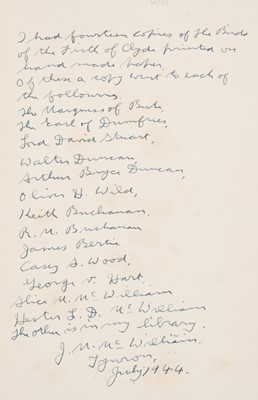 I had fourteen copies of The Birds
of the Firth of Clyde printed on
hand made paper.
Of these a copy went to each of
the following
The Marquess of Bute,
The Earl of Dumfries,
Lord David Stuart,
Walter Duncan,
Arthur Bryce Duncan,
Oliver H. Wild,
Keith Buchanan,
R. M. Buchanan
James Bertie
Casey A. Wood,
George V. Hart,
Alice M. McWilliam
Hester L. D. McWilliam
The other is in my library.
J. M. McWilliam.
Tynron,
July 1944.